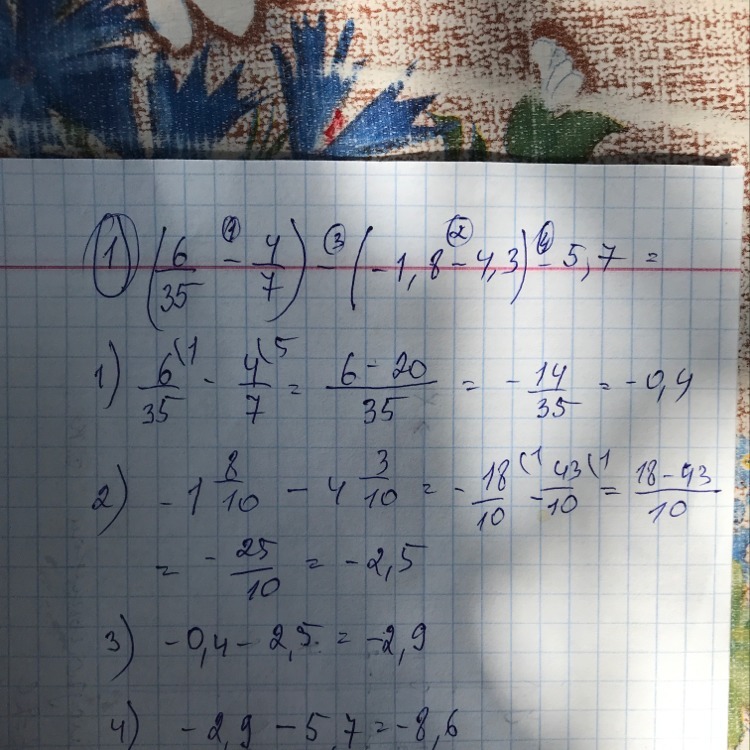 ① (6/35 -① 4/7) -③ (-1,8 -② 4,3) -④ 5,7 =
1) 6(1/35 - 4(5/7 = 6-20/35 = -14/35 = -0,4
2) -1 8/10 - 4 3/10 = -18(1/10 - 43(1/10 = 18-43/10
= -25/10 = -2,5
3) -0,4 - 2,5 = -2,9
4) -2,9 - 5,7 = -8,6